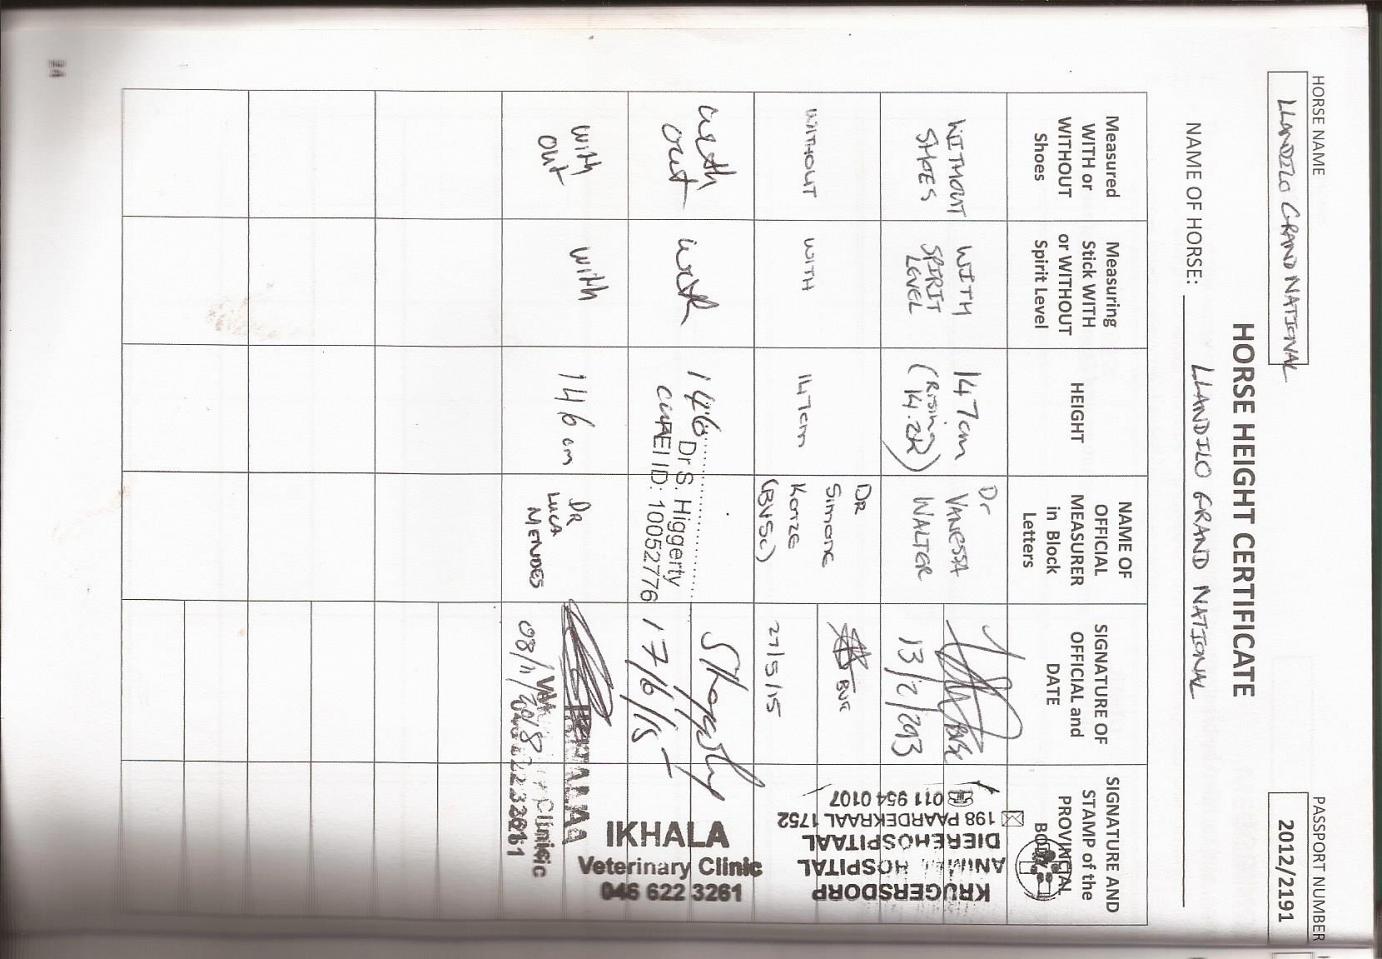 HORSE NAME
LLANDILO GRAND NATIONAL
PASSPORT NUMBER
2012/2191
HORSE HEIGHT CERTIFICATE
NAME OF HORSE: LLANDILO GRAND NATIONAL
Measured
WITH or
WITHOUT
Shoes
Measuring
Stick WITH
or WITHOUT
Spirit Level
HEIGHT
NAME OF
OFFICIAL
MEASURER
in Block
Letters
SIGNATURE OF
OFFICIAL and
DATE
SIGNATURE AND
STAMP of the
PROVINCIAL
BODY
WITHOUT
SHOES
WITH
SPIRIT
LEVEL
147cm
(Rising
14.2R)
Dr
VANESSA
WALTER
13/2/2013
KRUGERSDORP
ANIMAL HOSPITAL
DIEREHOSPITAAL
198 PAARDEKRAAL 1752
011 954 0107
WITHOUT
WITH
147cm
DR
Simone
(BVSc)
27/5/15
with
out
with
146
cm
Dr S. Higgerty
FEI ID: 10052776
17/6/15
IKHALA
Veterinary Clinic
046 622 3261
with
out
with
146 cm
DR
LUCA
MENDES
Clinic
24